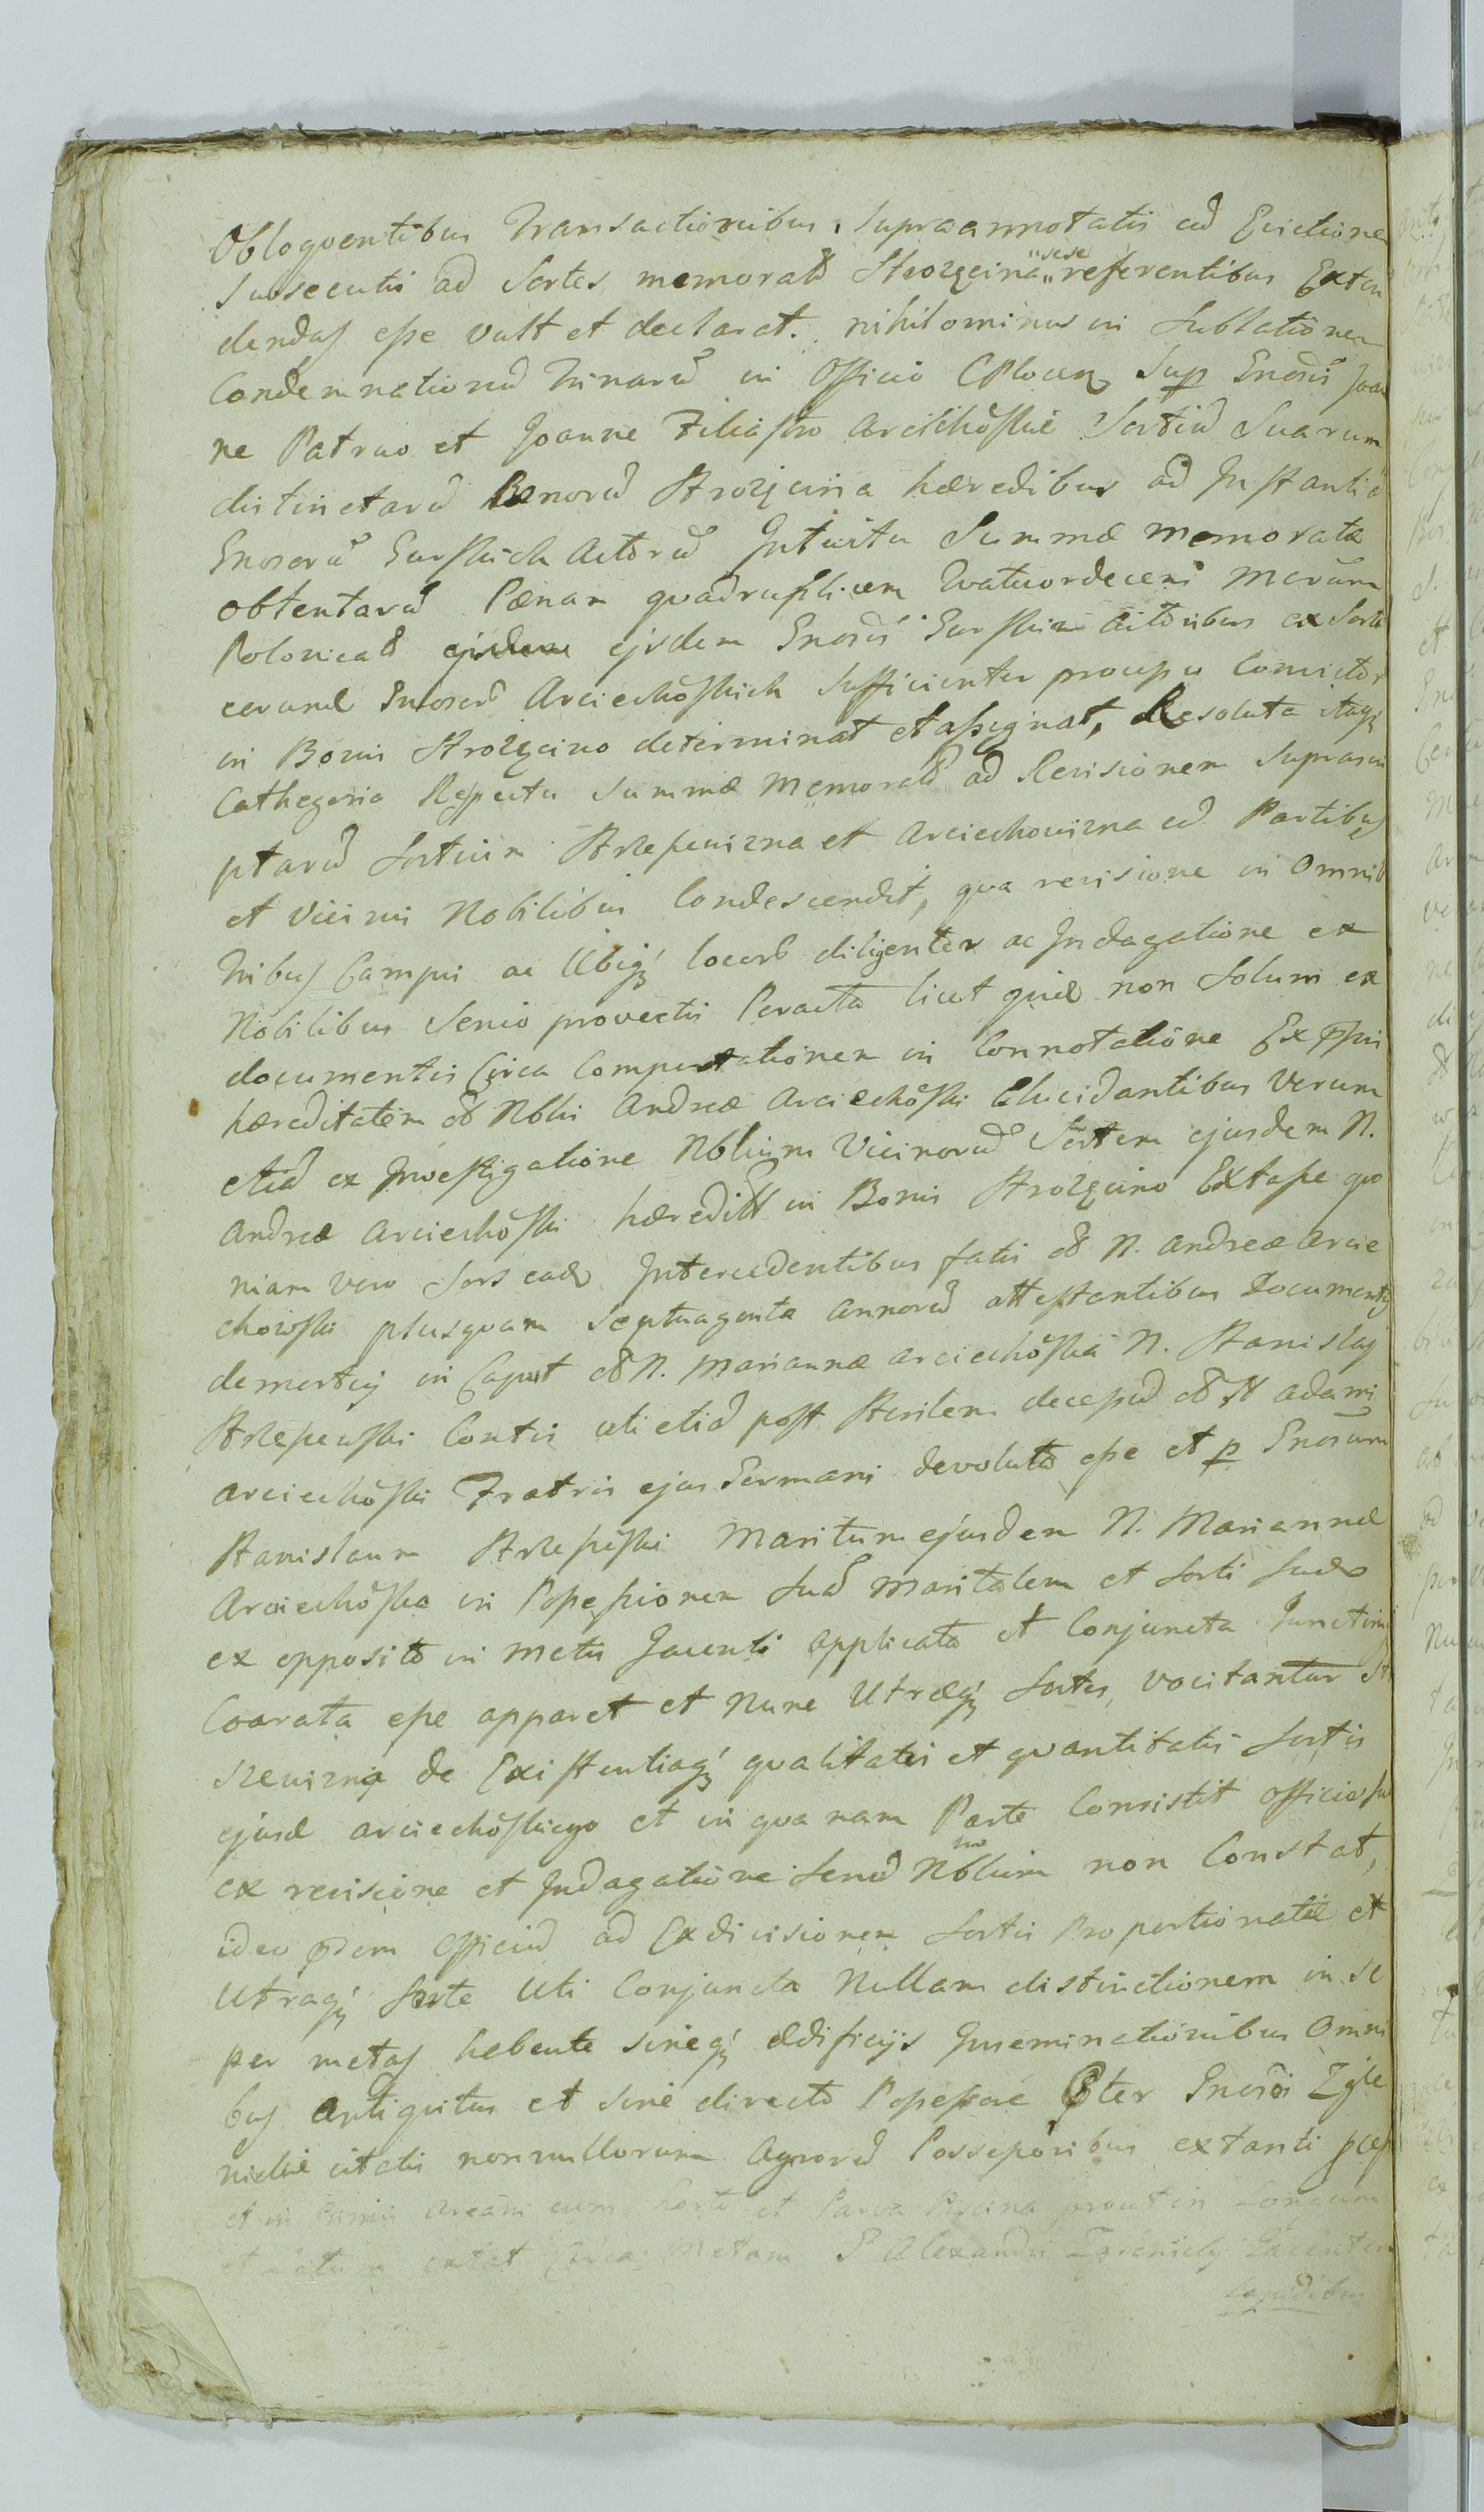 Obloquentibus Transactionibus, supraannotatis ad Evictione
subsecutis ad Sortes memorat Strozęcina „sese„ referentibus Exten
dendas esse vult et declarat. nihilominus in Sublatione
Condemnationu trinaru in Officio CPlocen Sup Gnosis Joan
ne Patruo et Joanne Filiastro Arciechoski Sortiu Suarum
distinctaru Bonoru Strozęcina hæredibus ad Instantia
Gnoseru Gurskich Actoru Intuitu Summæ memoratæ
obtentaru Pœnam quadruplicem Quatuordecem Marcum
Polonical ejsdem Gnosis Gurskim Actoribus ex Sorte
earund Gnoseru Arciechoskich Sufficienter procesu Convictor
in Bonis Strozęcino determinat et assignat, Resoluta itaq
Cathegoria Respectu Summæ Memorat ad Revisionem suprascri
ptaru Sortium Strzeszewizna et Arciechowizna cu Partibus
et vicinis Nobilibus Condescendit, qua revisione in Omnib
tribus Campis ac Ubiq locoru diligenter ac Indagatione ex
Nobilibus Senio provectis Peracta licet quid non Solum ex
documentis Circa Comportationem in Connotatione Expssis
hæreditatem Nblis Andreæ Arciechoski Elucidantibus Verum
etia ex Investigatione Nblium Vicinoru Sortem ejusdem N.
Andreæ Arciechoski hæredit in Bonis Strozęcino Extasse quo
niam vero Sors ead Intercedentibus fatis N. Andreæ Arcie
chowski plusquam Septuaginta annoru attestantibus Documentis
demortuj in Caput N. Mariannæ Arciechoska N. Stanislaj
Strzeszewski Contis uti etia post sterilem decessu N Adami
Arciechoski Fratris ejus Germani devoluta esse et p Gnosum
Stanislaum Strzeszeski Maritum ejusdem N. Mariannæ
Arciechoska in Possessionem Sua maritalem et Sorti Suæ
ex opposito in metis Jacenti applicata et Conjuncta Junctim
Coarata esse apparet et Nunc Utræq Sortes, vocitantur St
szewizna de Existentiaq qualitatis et quantitatis Sortis
ejusd Arciechoskiego et in qua nam Parte Consistit officio su
ex revisione et Indagatione Senu Nblium non Constat,
ideo idem Officiu ad Exdivisionem Sortis Proportionatæ et
Utraq Sorte Uti Conjuncta Nullam distinctionem in se
per metas habente sineq ædificijs Inseminationibus Omni
bus antiquitus et sine directo Possessore Pter Gnosi Zgle
nickie citatis nonnullorum Agroru Possessoribus extanti
et in Primis Aream cum horto et Parva Piscina prout in Longum
et Latum extat Circa Metam G Alexandri Zglenicky Jacentem
Lapidibus